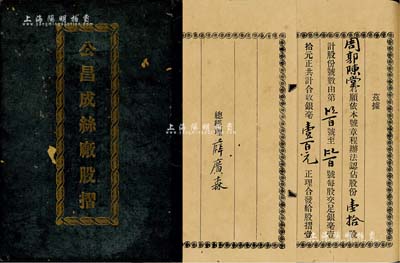 上海陽明拍賣
公昌成絲廠股摺
茲據
周郭陳堂願依本號章程辦法認佔股份壹拾股
計股份號數由第 號至 號每股交足銀毫壹
拾元正共計合收銀毫壹百元正理合發給股摺
總經理薛廣森